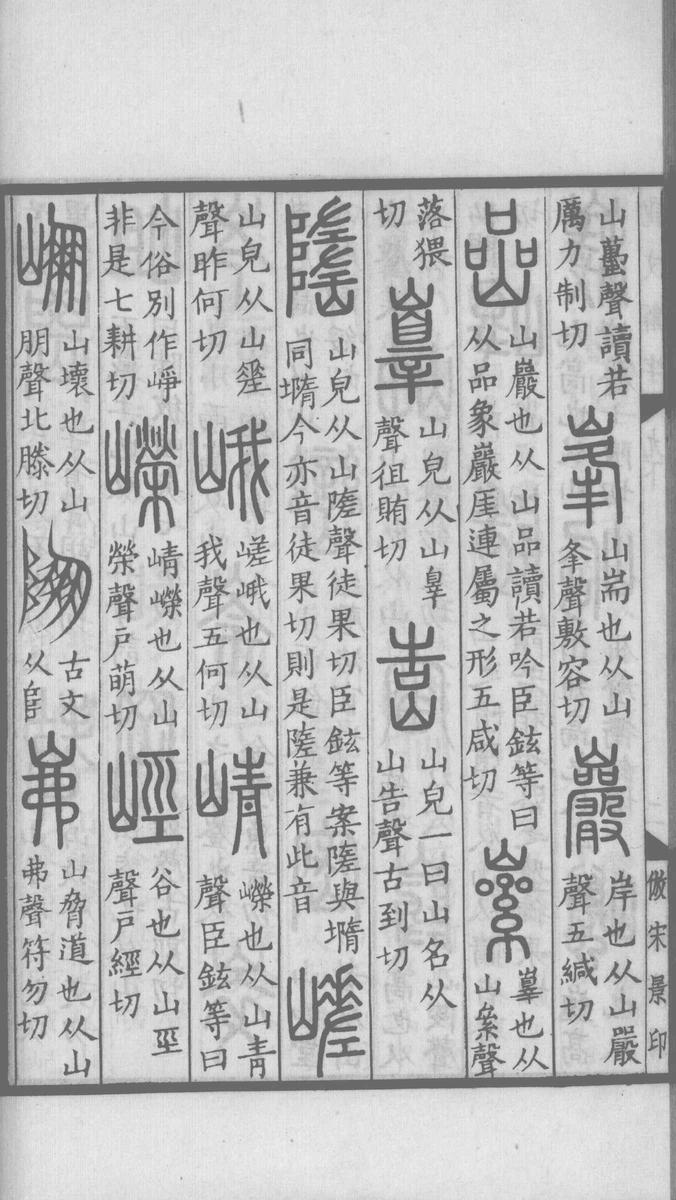 山蠆聲讀若
厲力制切
峯
山耑也从山
夆聲敷容切
巖
岸也从山嚴
聲五緘切
嵒
山巖也从山品讀若吟臣鉉等曰
从品象巖厓連屬之形五咸切
㠥
辠也从
山絫聲
落猥
切
嶵
山皃从山辠
聲徂賄切
峼
山皃一曰山名从
山告聲古到切
隓
山皃从山隓聲徒果切臣鉉等案隓與墮
同墮今亦音徒果切則是隓兼有此音
嵯
山皃从山𡍮
聲昨何切
峨
嵯峨也从山
我聲五何切
崝
嶸也从山青
聲臣鉉等曰
今俗別作崢
非是七耕切
嶸
崝嶸也从山
榮聲戶萌切
巠
谷也从山巠
聲戶經切
崩
山壞也从山
朋聲北滕切
𨹹
古文
从𨸏
岪
山脅道也从山
弗聲符勿切
倣宋景印